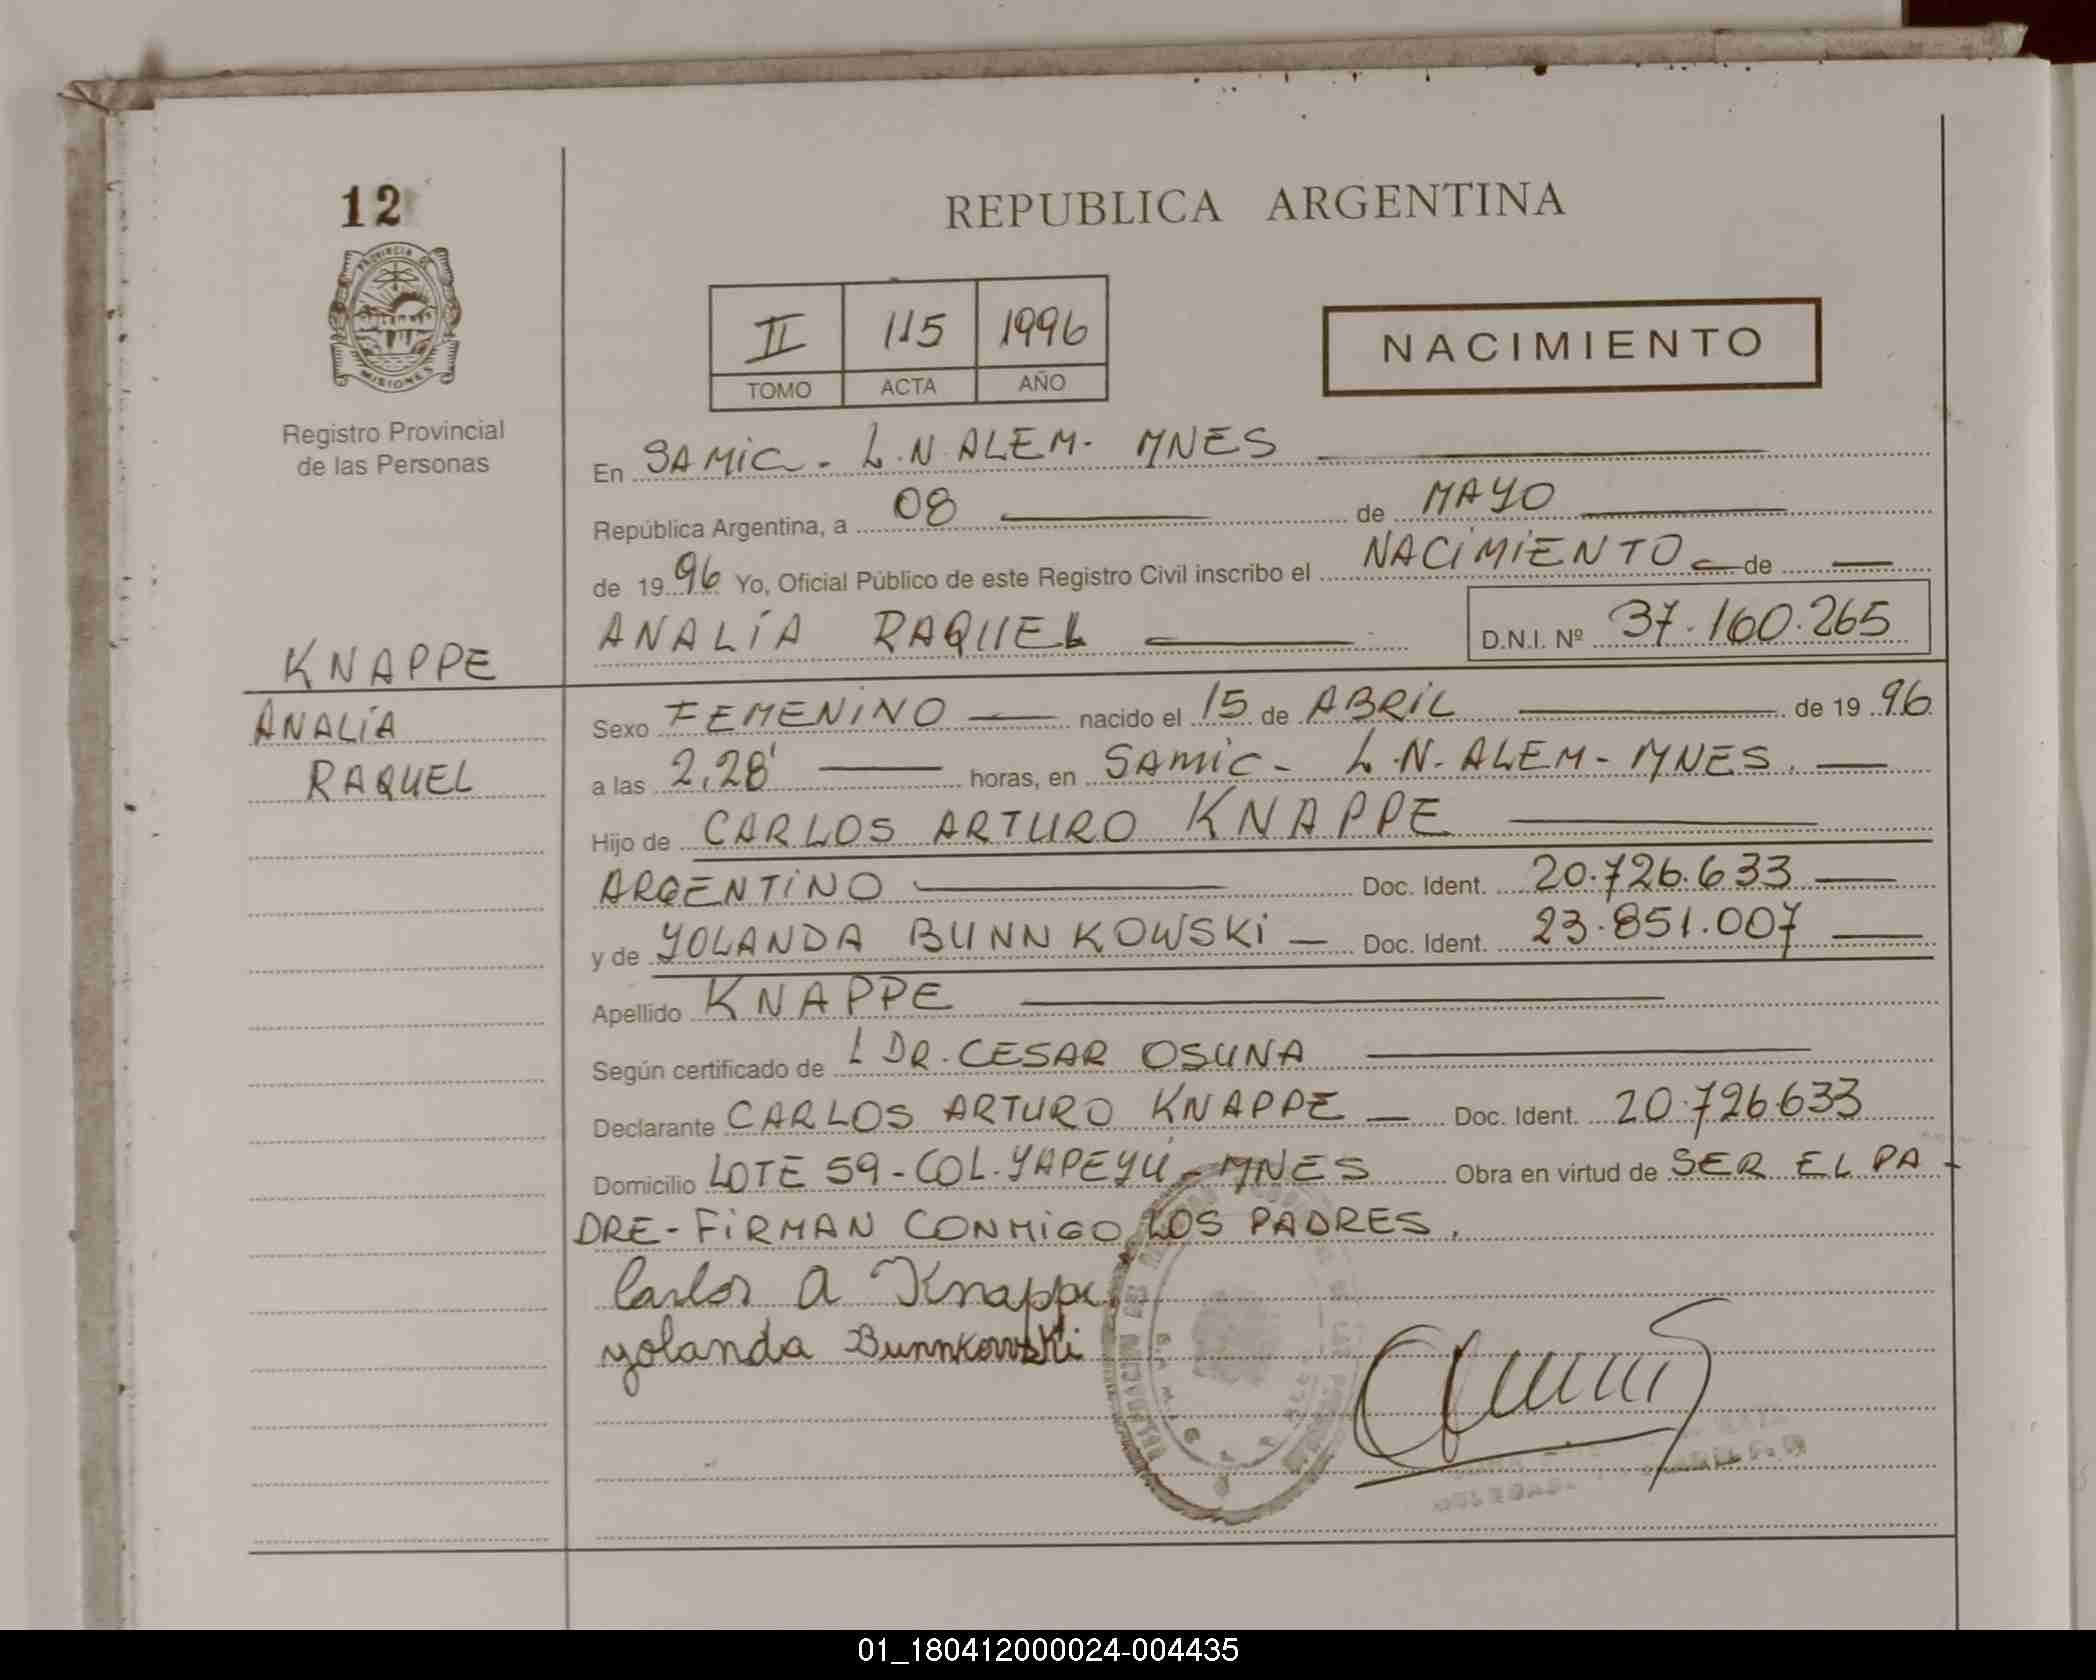 12
REPUBLICA ARGENTINA
PROVINCIA DE
MISIONES
Registro Provincial
de las Personas
II 115 1996
TOMO ACTA AÑO
NACIMIENTO
En SAMIC - L.N. ALEM - MNES
República Argentina, a 08 de MAYO
de 1996 Yo, Oficial Público de este Registro Civil inscribo el NACIMIENTO de
ANALÍA RAQUEL D.N.I. Nº 37.160.265
KNAPPE
ANALÍA
RAQUEL
Sexo FEMENINO nacido el 15 de ABRIL de 1996
a las 2,28' horas, en SAMIC - L.N. ALEM - MNES.
Hijo de CARLOS ARTURO KNAPPE
ARGENTINO Doc. Ident. 20.726.633
y de YOLANDA BUNNKOWSKI Doc. Ident. 23.851.007
Apellido KNAPPE
Según certificado de L DR. CESAR OSUNA
Declarante CARLOS ARTURO KNAPPE Doc. Ident. 20.726.633
Domicilio LOTE 59 - COL. YAPEYÚ - MNES Obra en virtud de SER EL PA-
DRE - FIRMAN CONMIGO LOS PADRES.
Carlos A Knappe
yolanda Bunnkowski
01_180412000024-004435